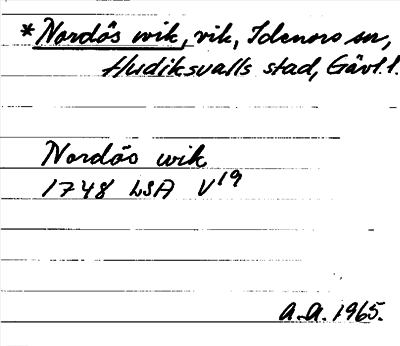 *Nordös wik, vik, Idenors sn,
Hudiksvalls stad, Gävl. l.
Nordös wik
1748 LSA V19
A.A. 1965.